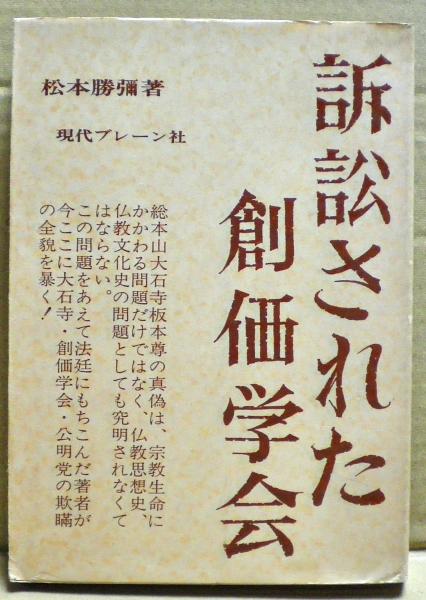 訴訟された
創価学会
松本勝彌著
現代ブレーン社
総本山大石寺板本尊の真偽は、宗教生命に
かかわる問題だけではなく、仏教思想史、
仏教文化史の問題としても究明されなくて
はならない。
この問題をあえて法廷にもちこんだ著者が
今ここに大石寺・創価学会・公明党の欺瞞
の全貌を暴く！